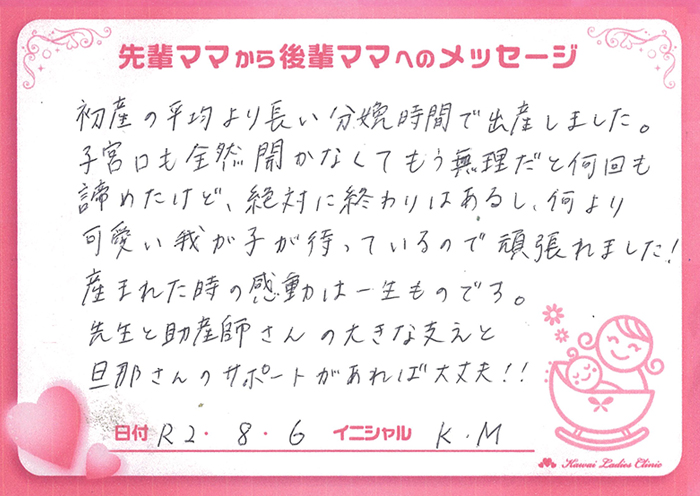 先輩ママから後輩ママへのメッセージ
初産の平均より長い分娩時間で出産しました。
子宮口も全然開かなくてもう無理だと何回も
諦めたけど、絶対に終わりはあるし、何より
可愛い我が子が待っているので頑張れました!
産まれた時の感動は一生ものです。
先生と助産師さんの大きな支えと
旦那さんのサポートがあれば大丈夫!!
日付 R2・8・6 イニシャル K.M
Kawai Ladies Clinic